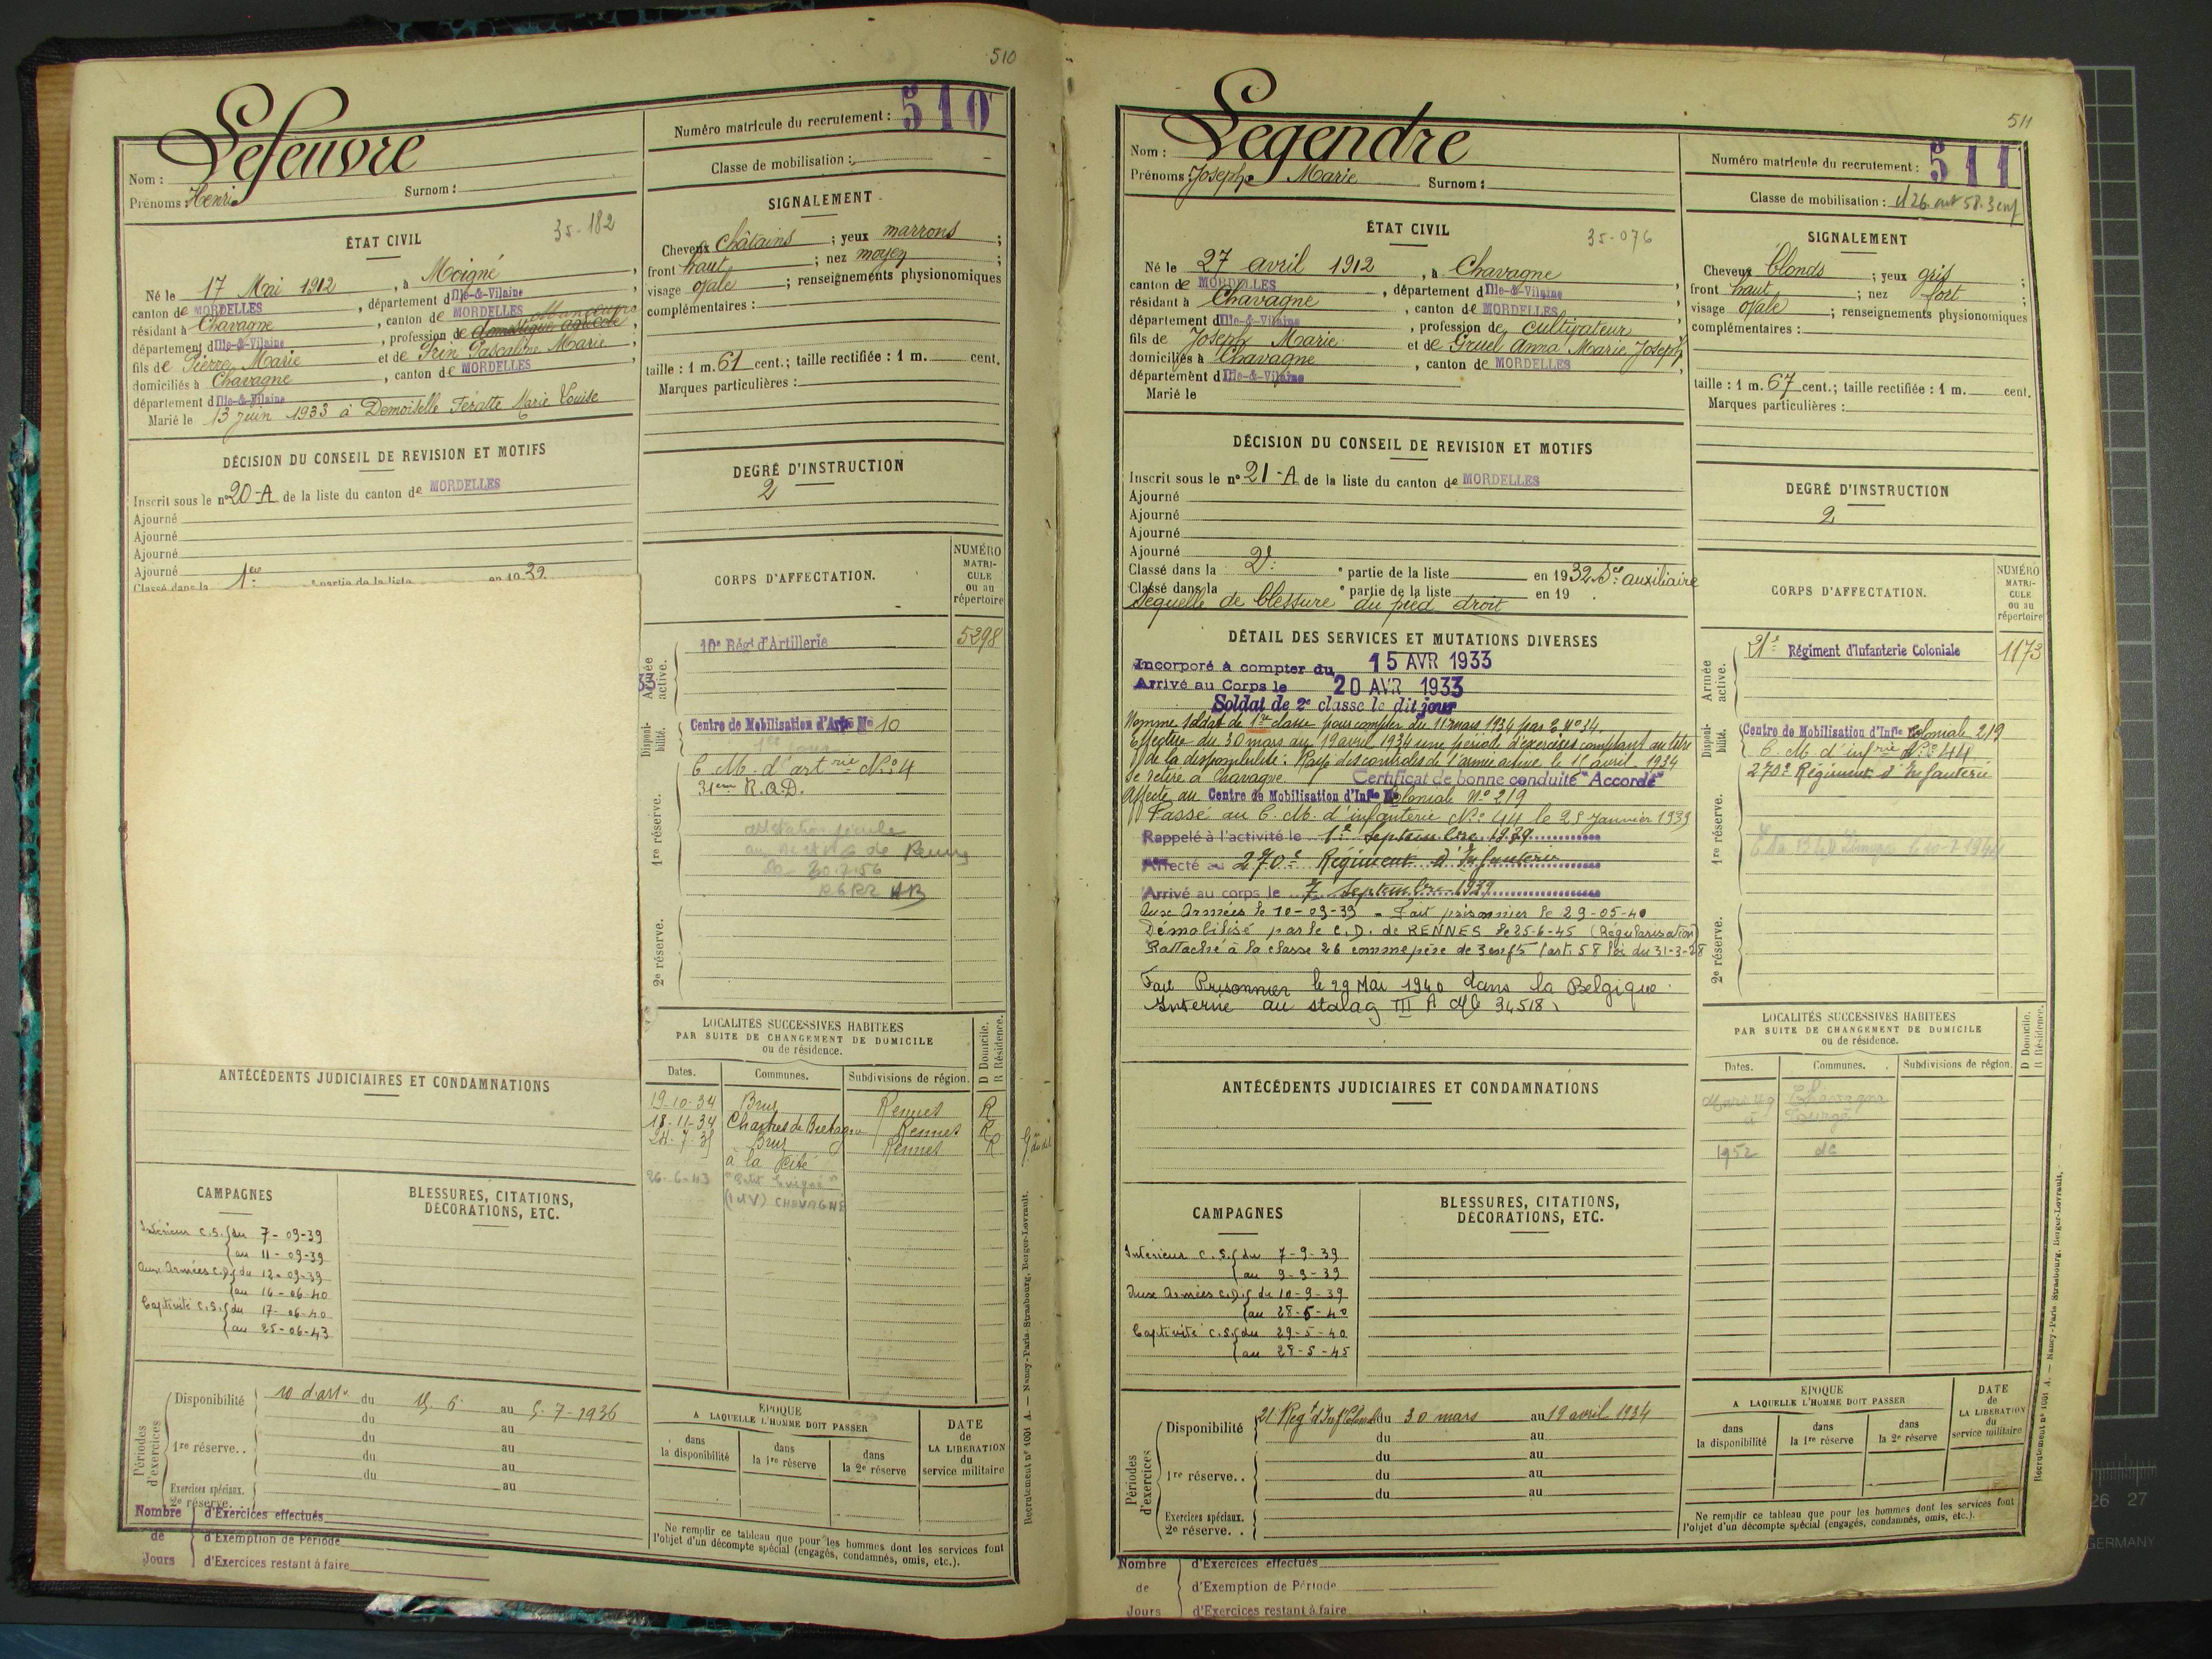 510
Lefeuvre
Nom :
Prénoms : Henri
Surnom :
Numéro matricule du recrutement : 510
Classe de mobilisation :
ÉTAT CIVIL
35-182
Né le 17 Mai 1912, à Moigné,
canton de MORDELLES, département d'Ille-&-Vilaine,
résidant à Chavagne, canton de MORDELLES
département d'Ille-&-Vilaine, profession de domestique agricole,
fils de Pierre Marie et de Frin Pascaline Marie,
domiciliés à Chavagne, canton de MORDELLES
département d'Ille-&-Vilaine
Marié le 13 juin 1933 à Demoiselle Feratte Marie Louise
SIGNALEMENT
Cheveux Châtains ; yeux marrons ;
front haut ; nez moyen ;
visage ovale ; renseignements physionomiques
complémentaires :
taille : 1 m. 61 cent.; taille rectifiée : 1 m. cent.
Marques particulières :
DÉCISION DU CONSEIL DE REVISION ET MOTIFS
Inscrit sous le n° 20-A de la liste du canton de MORDELLES
Ajourné
Ajourné
Ajourné
Ajourné
Classé dans la 1ère partie de la liste en 1932
DEGRÉ D'INSTRUCTION
2
CORPS D'AFFECTATION.
NUMÉRO MATRICULE ou au répertoire
Armée active.
10e Régt d'Artillerie
5298
Disponibilité.
Centre de Mobilisation d'Artie No 10
C. M. d'artrie No 4
31ème R.A.D.
1re réserve.
2e réserve.
LOCALITÉS SUCCESSIVES HABITÉES
PAR SUITE DE CHANGEMENT DE DOMICILE
ou de résidence.
D Domicile.
R Résidence.
Dates. Communes. Subdivisions de région.
19-10-34 Bruz Rennes R
18-11-34 Chartres de Bretagne Rennes R
24-7-35 Bruz Rennes R
à la Cité
26-6-43
(I&V) CHAVAGNE
ANTÉCÉDENTS JUDICIAIRES ET CONDAMNATIONS
CAMPAGNES
BLESSURES, CITATIONS,
DÉCORATIONS, ETC.
Intérieur C.S. du 7-09-39
au 11-09-39
Aux Armées C.D. du 12-09-39
au 16-06-40
Captivité C.S. du 17-06-40
au 25-06-43
Périodes d'exercices
Disponibilité 10 d'artie du 15.6 au 5-7-1936
du au
1re réserve.. du au
du au
du au
Exercices spéciaux.
2e réserve.
Nombre de Jours
d'Exercices effectués
d'Exemption de Période
d'Exercices restant à faire
EPOQUE
A LAQUELLE L'HOMME DOIT PASSER
dans la disponibilité
dans la 1re réserve
dans la 2e réserve
DATE de LA LIBERATION du service militaire
Ne remplir ce tableau que pour les hommes dont les services font
l'objet d'un décompte spécial (engagés, condamnés, omis, etc.).
Recrutement n° 1001 A. — Nancy-Paris-Strasbourg, Berger-Levrault.
511
Legendre
Nom :
Prénoms : Joseph Marie
Surnom :
Numéro matricule du recrutement : 511
Classe de mobilisation : cl 26 art 58. 3 enf
ÉTAT CIVIL
35-076
Né le 27 avril 1912, à Chavagne
canton de MORDELLES, département d'Ille-&-Vilaine,
résidant à Chavagne, canton de MORDELLES,
département d'Ille-&-Vilaine, profession de cultivateur,
fils de Joseph Marie et de Gruel Anna Marie Joseph,
domiciliés à Chavagne, canton de MORDELLES,
département d'Ille-&-Vilaine
Marié le
SIGNALEMENT
Cheveux blonds ; yeux gris ;
front haut ; nez fort ;
visage ovale ; renseignements physionomiques
complémentaires :
taille : 1 m. 67 cent.; taille rectifiée : 1 m. cent.
Marques particulières :
DÉCISION DU CONSEIL DE REVISION ET MOTIFS
Inscrit sous le n° 21-A de la liste du canton de MORDELLES
Ajourné
Ajourné
Ajourné
Ajourné
Classé dans la 2e partie de la liste en 1932 Sce auxiliaire
Classé dans la partie de la liste en 19
Séquelle de blessure du pied droit
DEGRÉ D'INSTRUCTION
2
DÉTAIL DES SERVICES ET MUTATIONS DIVERSES
Incorporé à compter du 15 AVR 1933
Arrivé au Corps le 20 AVR 1933
Soldat de 2e classe le dit jour
Nommé soldat de 1re classe pour compter du 11 mars 1934 par O. No 34.
Effectue du 30 mars au 19 avril 1934 une période d'exercices comptant au titre
de la disponibilité. Rayé des contrôles de l'armée active le 15 avril 1934
Se retire à Chavagne Certificat de bonne conduite "Accordé"
Affecté au Centre de Mobilisation d'Infie Coloniale No 219
Passé au C. M. d'infanterie No 44 le 25 Janvier 1939
Rappelé à l'activité le 1er Septembre 1939
Affecté au 270e Régiment d'Infanterie
Arrivé au corps le 7 Septembre 1939
Aux Armées le 10-09-39 - Fait prisonnier le 29-05-40
Démobilisé par le C.D. de RENNES le 25-6-45 (Régularisation)
Rattaché à la classe 26 comme père de 3 enfts (art. 58 loi du 31-3-28
Fait Prisonnier le 29 Mai 1940 dans la Belgique.
Interné au stalag III A Mle 34518
CORPS D'AFFECTATION.
NUMÉRO MATRICULE ou au répertoire
Armée active.
21e Régiment d'Infanterie Coloniale
1173
Disponibilité.
Centre de Mobilisation d'Infie Coloniale 219
C. M. d'infrie No 44
270e Régiment d'Infanterie
1re réserve.
2e réserve.
LOCALITÉS SUCCESSIVES HABITÉES
PAR SUITE DE CHANGEMENT DE DOMICILE
ou de résidence.
D Domicile.
R Résidence.
Dates. Communes. Subdivisions de région.
Chavagne
1952 do
ANTÉCÉDENTS JUDICIAIRES ET CONDAMNATIONS
CAMPAGNES
BLESSURES, CITATIONS,
DÉCORATIONS, ETC.
Intérieur C.S. du 7-9-39
au 9-9-39
Aux Armées C.D. du 10-9-39
au 28-5-40
Captivité C.S. du 29-5-40
au 28-5-45
Périodes d'exercices
Disponibilité 21 Régt d'Inf Colonial du 30 mars au 19 avril 1934
du au
1re réserve.. du au
du au
du au
Exercices spéciaux.
2e réserve. .
Nombre de Jours
d'Exercices effectués
d'Exemption de Période
d'Exercices restant à faire
EPOQUE
A LAQUELLE L'HOMME DOIT PASSER
dans la disponibilité
dans la 1re réserve
dans la 2e réserve
DATE de LA LIBERATION du service militaire
Ne remplir ce tableau que pour les hommes dont les services font
l'objet d'un décompte spécial (engagés, condamnés, omis, etc.).
Recrutement n° 1001 A. — Nancy-Paris-Strasbourg, Berger-Levrault.
26 27
GERMANY